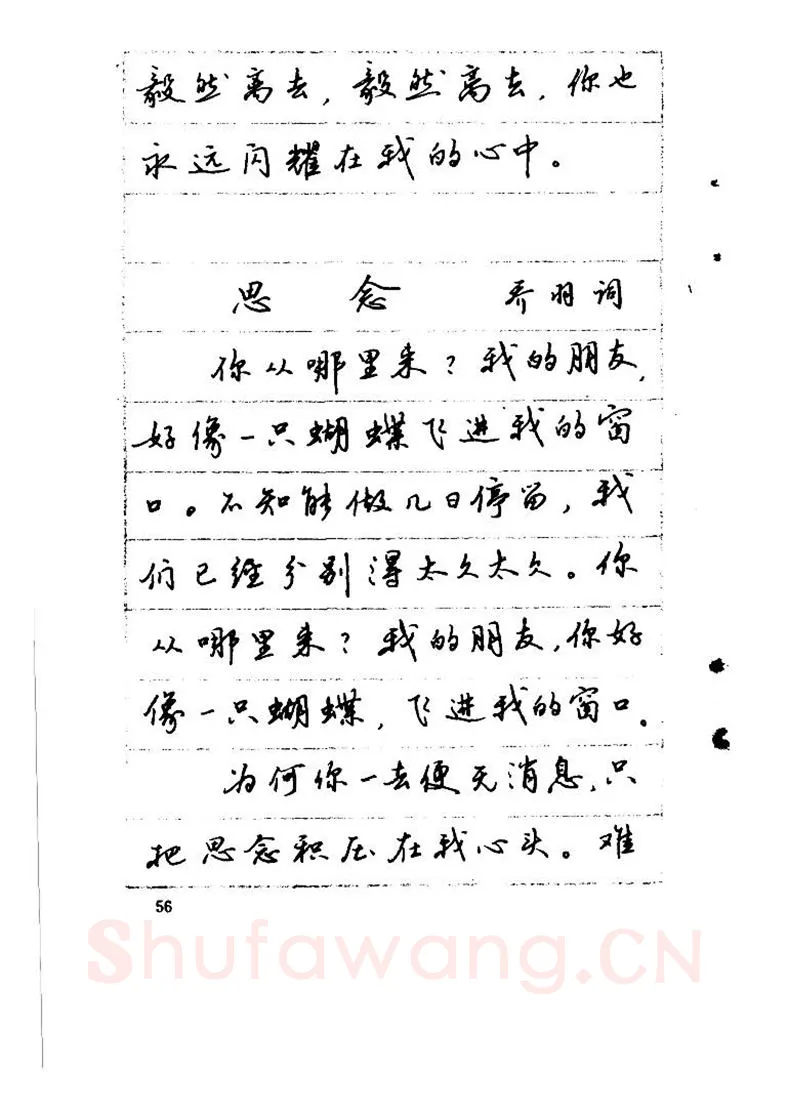 毅然离去，毅然离去，你也
永远闪耀在我的心中。
思 念 乔羽词
你从哪里来？我的朋友，
好像一只蝴蝶飞进我的窗
口。不知能做几日停留，我
们已经分别得太久太久。你
从哪里来？我的朋友，你好
像一只蝴蝶，飞进我的窗口。
为何你一去便无消息，只
把思念积压在我心头。难
56
Shufawang.CN